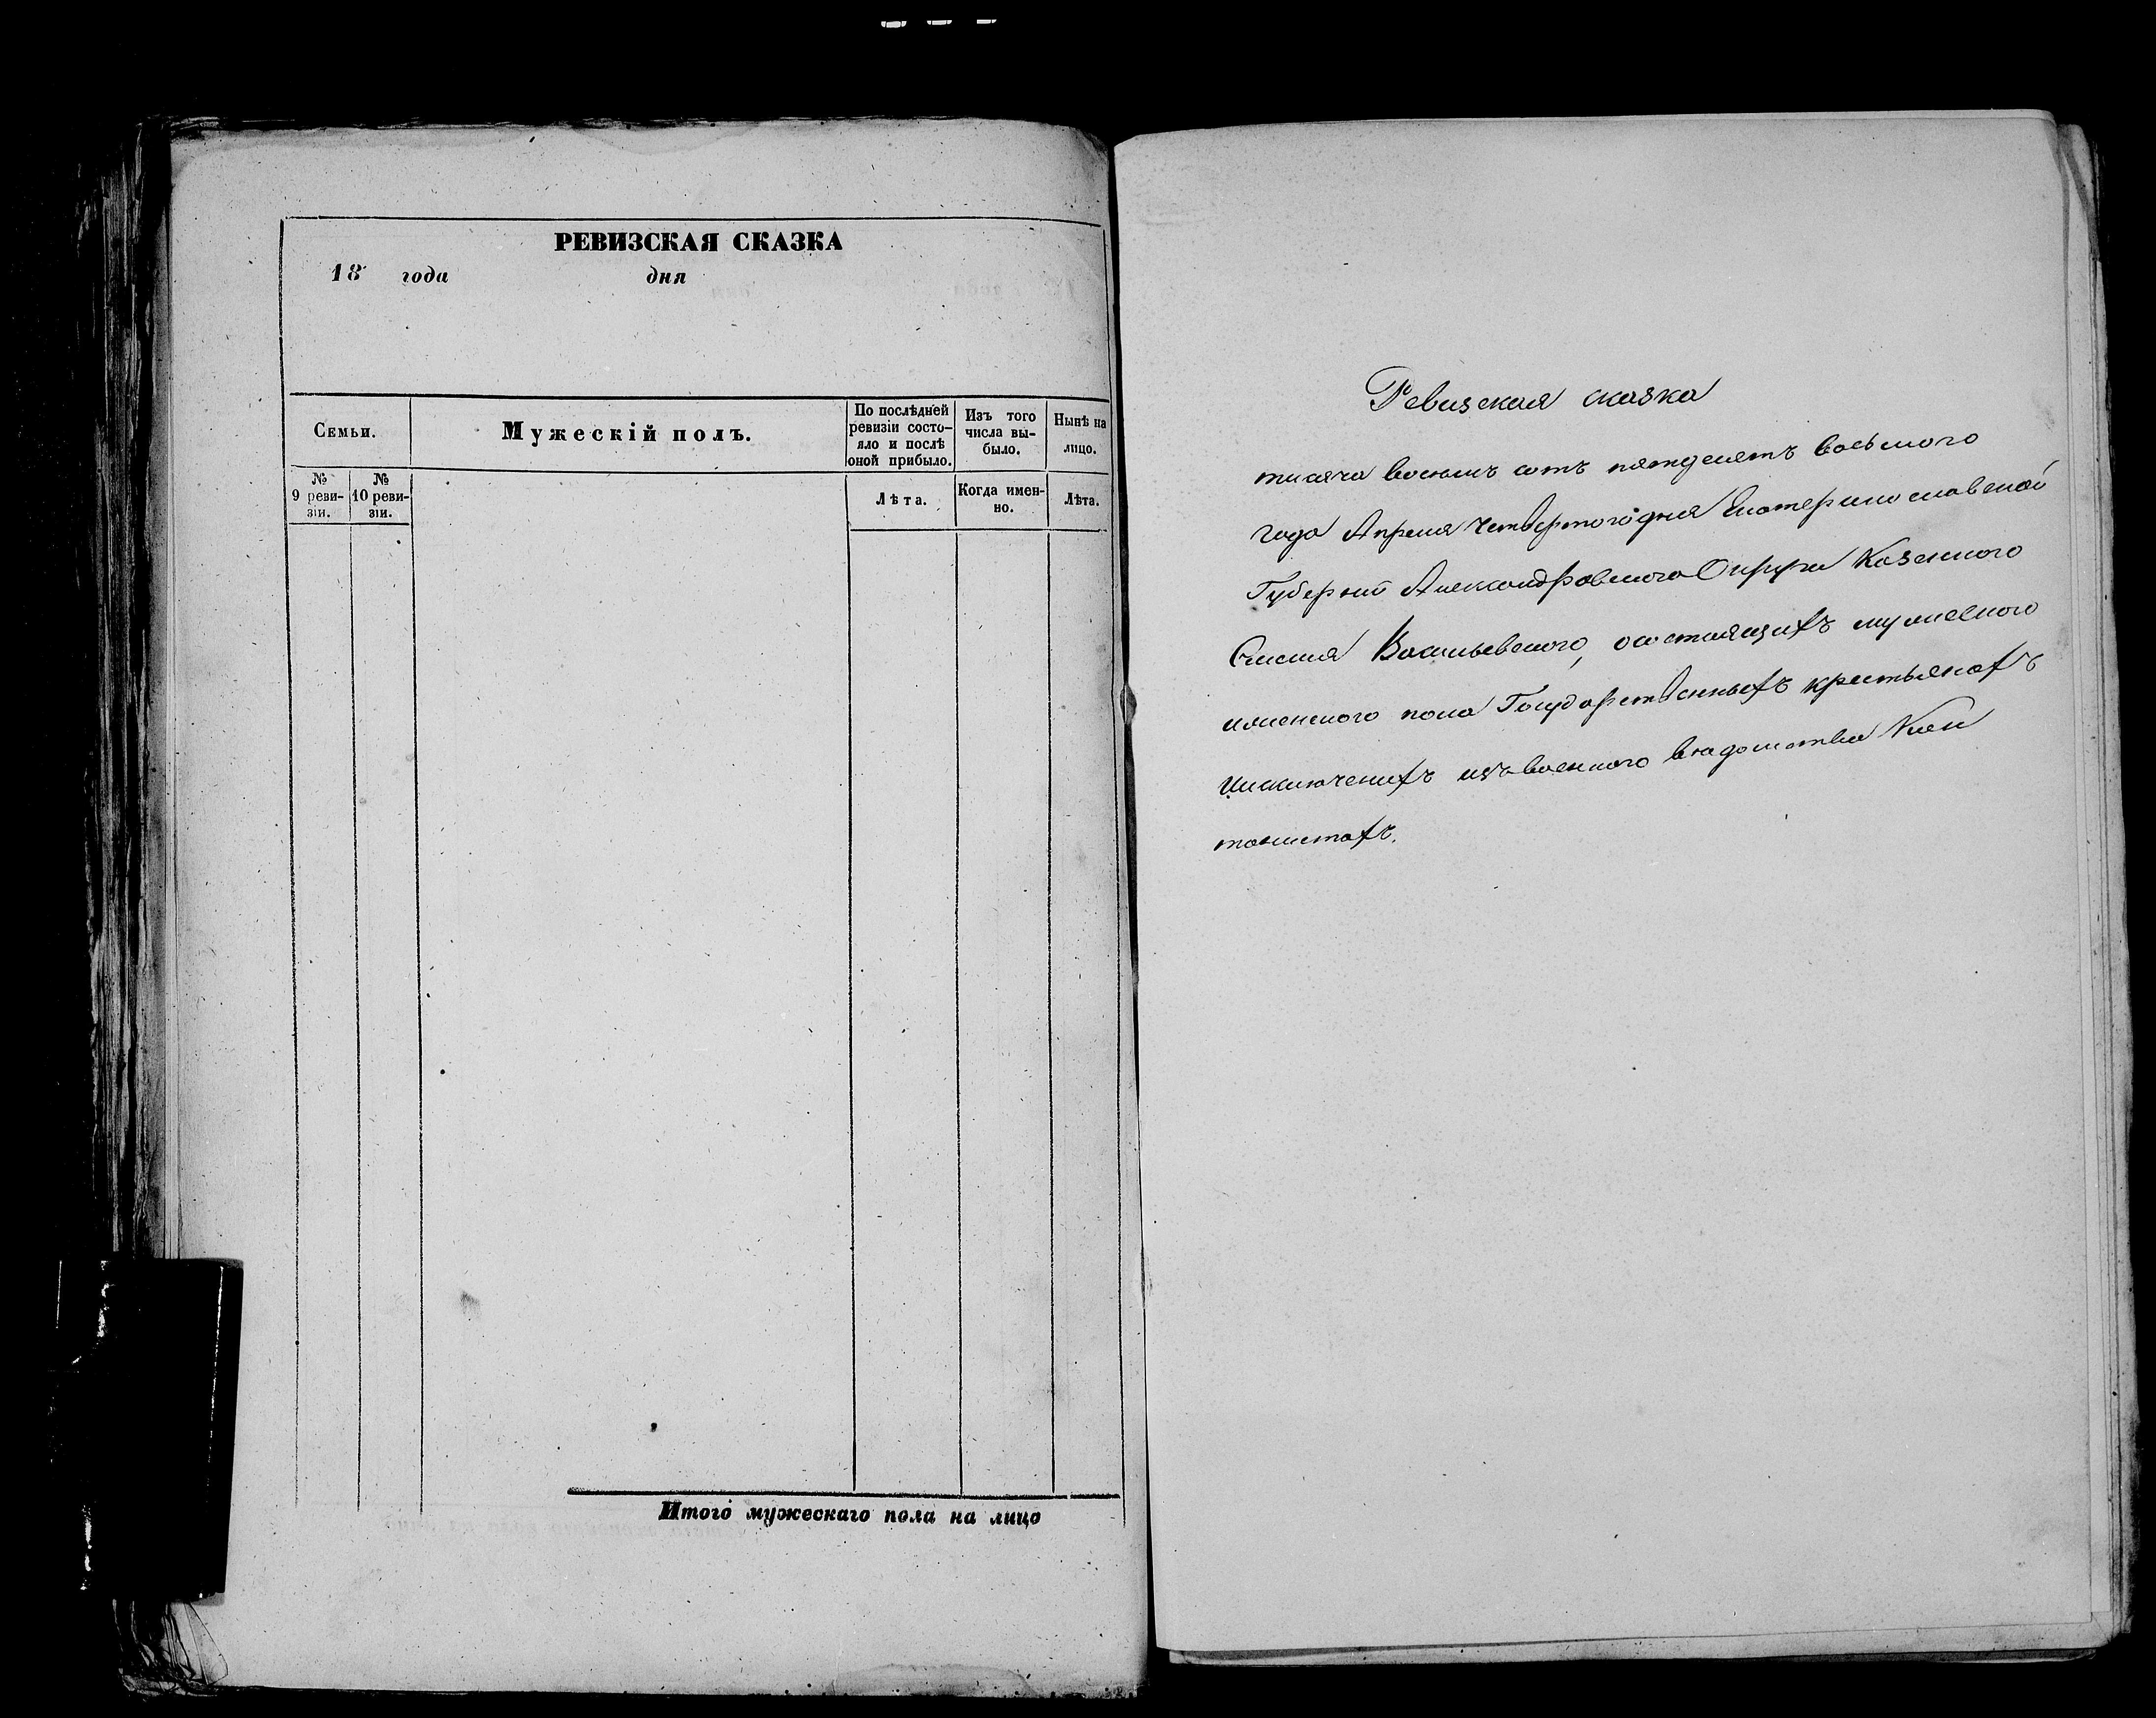 РЕВИЗСКАЯ СКАЗКА
18 года дня
Семьи.
Мужескій полъ.
По послѣдней
ревизіи состо-
яло и послѣ
оной прибыло.
Изъ того
числа вы-
было.
Нынѣ на
лицо.
№
9 реви-
зіи.
№
10 реви-
зіи.
Лѣта.
Когда имен-
но.
Лѣта.
Итого мужескаго пола на лицо
Ревизская сказка
тисяча восемъ сотъ пятдесятъ восьмого
года Апреля четвертого дня Екатеринославской
Губерніи Александровского Округа Казенного
Селенія Васильевского, о состоящихъ мужеского
и женского пола Государственныхъ крестьянахъ
и исключенихъ изъ военного ведомства Кан
тонистахъ.